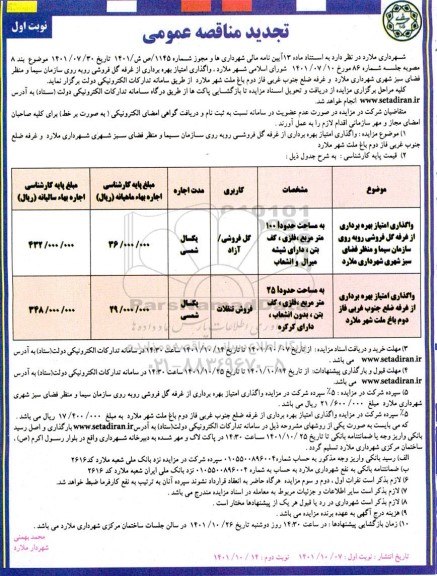 نوبت اول
تجدید مناقصه عمومی
شهرداری ملارد در نظر دارد به استناد ماده ۱۳ آیین نامه مالی شهرداری ها و مجوز شماره ۱۱۴۵/ص ش/۱۴۰۱ تاریخ ۱۴۰۱/۰۷/۳۰ موضوع بند ۸
مصوبه جلسه شماره ۸۶ مورخ ۱۴۰۱/۰۷/۱۰ شورای اسلامی شهر ملارد، واگذاری امتیاز بهره برداری از غرفه گل فروشی روبه روی سازمان سیما و منظر
فضای سبز شهری شهرداری ملارد و غرفه ضلع جنوب غربی فاز دوم باغ ملت شهر ملارد از طریق سامانه تدارکات الکترونیکی دولت برگزار نماید.
کلیه مراحل برگزاری مزایده از دریافت و تحویل اسناد مزایده تا بازگشایی پاکت ها از طریق درگاه سامانه تدارکات الکترونیکی دولت (ستاد) به آدرس
www.setadiran.ir انجام خواهد شد.
متقاضیان شرکت در مزایده در صورت عدم عضویت در سامانه نسبت به ثبت نام و دریافت گواهی امضای الکترونیکی (به صورت بر خط) برای کلیه صاحبان
امضای مجاز و مهر سازمانی اقدام لازم را به عمل آورند.
۱) موضوع مزایده: واگذاری امتیاز بهره برداری از غرفه گل فروشی روبه روی سازمان سیما و منظر فضای سبز شهری شهرداری ملارد و غرفه ضلع
جنوب غربی فاز دوم باغ ملت شهر ملارد
۲) قیمت پایه کارشناسی: به شرح جدول ذیل:
موضوع مشخصات کاربری مدت اجاره مبلغ پایه کارشناسی اجاره بهاء ماهیانه (ریال) مبلغ پایه کارشناسی اجاره بهاء سالیانه (ریال)
واگذاری امتیاز بهره برداری از غرفه گل فروشی روبه روی سازمان سیما و منظر فضای سبز شهری شهرداری ملارد به مساحت حدودا ۱۰۰ متر مربع، فلزی، کف بتن، دارای شیشه میرال و انشعاب گل فروشی/آزاد یکسال شمسی ۳۶/۰۰۰/۰۰۰ ۴۳۲/۰۰۰/۰۰۰
واگذاری امتیاز بهره برداری از غرفه ضلع جنوب غربی فاز دوم باغ ملت شهر ملارد به مساحت حدودا ۲۵ متر مربع، فلزی، کف بتن، بدون انشعاب، دارای کرکره فروش تنقلات یکسال شمسی ۲۹/۰۰۰/۰۰۰ ۳۴۸/۰۰۰/۰۰۰
۳) مهلت خرید و دریافت اسناد مزایده: از تاریخ ۱۴۰۱/۱۰/۰۷ تا تاریخ ۱۴۰۱/۱۰/۱۴ ساعت ۱۴:۳۰ در سامانه تدارکات الکترونیکی دولت (ستاد) به آدرس
www.setadiran.ir می باشد.
۴) مهلت قبول و بارگذاری پیشنهادات: از تاریخ ۱۴۰۱/۱۰/۱۴ تا تاریخ ۱۴۰۱/۱۰/۲۵ ساعت ۱۴:۳۰ در سامانه تدارکات الکترونیکی دولت (ستاد) به آدرس
www.setadiran.ir می باشد.
۵) سپرده شرکت در مزایده: ۵٪ سپرده شرکت در مزایده واگذاری امتیاز بهره برداری از غرفه گل فروشی روبه روی سازمان سیما و منظر فضای سبز شهری
شهرداری ملارد مبلغ ۲۱/۶۰۰/۰۰۰ ریال می باشد.
۵٪ سپرده شرکت در مزایده واگذاری امتیاز بهره برداری از غرفه ضلع جنوب غربی فاز دوم باغ ملت شهر ملارد به مبلغ ۱۷/۴۰۰/۰۰۰ ریال می باشد.
که می بایست به صورت یکی از روشهای مشروحه ذیل در سامانه تدارکات الکترونیکی دولت (ستاد) به آدرس www.setadiran.ir بارگذاری و اصل رسید
بانکی واریز وجه یا ضمانتنامه بانکی تا تاریخ ۱۴۰۱/۱۰/۲۵ ساعت ۱۴:۳۰ در پاکت لاک و مهر شده به دبیرخانه شهرداری واقع در بلوار رسول اکرم (ص)،
ساختمان مرکزی شهرداری ملارد تسلیم گردد.
الف) رسید بانکی واریز وجه مذکور به حساب شماره ۰۱۰۵۵۰۰۸۹۶۰۰۴ سپرده شرکت در مزایده نزد بانک ملی شعبه ملارد کد ۲۶۱۶
ب) ضمانتنامه بانکی به نفع شهرداری ملارد به حساب به شماره ۰۱۰۵۵۰۰۸۹۶۰۰۴ نزد بانک ملی ایران شعبه ملارد کد ۲۶۱۶
۶) لازم بذکر است نفرات اول، دوم و سوم مزایده هرگاه حاضر به انعقاد قرارداد نشوند سپرده آنان به ترتیب به نفع کارفرما ضبط خواهد شد.
۷) لازم بذکر است سایر اطلاعات و جزئیات مربوط به معامله در اسناد مزایده مندرج می باشد.
۸) لازم بذکر است شهرداری در رد یا قبول هر یک از پیشنهادها مختار است.
۹) هزینه درج آگهی به عهده برنده مزایده می باشد.
۱۰) زمان بازگشایی پیشنهادها: در ساعت ۱۴:۳۰ روز دوشنبه تاریخ ۱۴۰۱/۱۰/۲۶ در سالن جلسات ساختمان مرکزی شهرداری ملارد می باشد.
محمد بهمنی
شهردار ملارد
تاریخ انتشار: نوبت اول: ۱۴۰۱/۱۰/۰۷ نوبت دوم: ۱۴۰۱/۱۰/۱۴